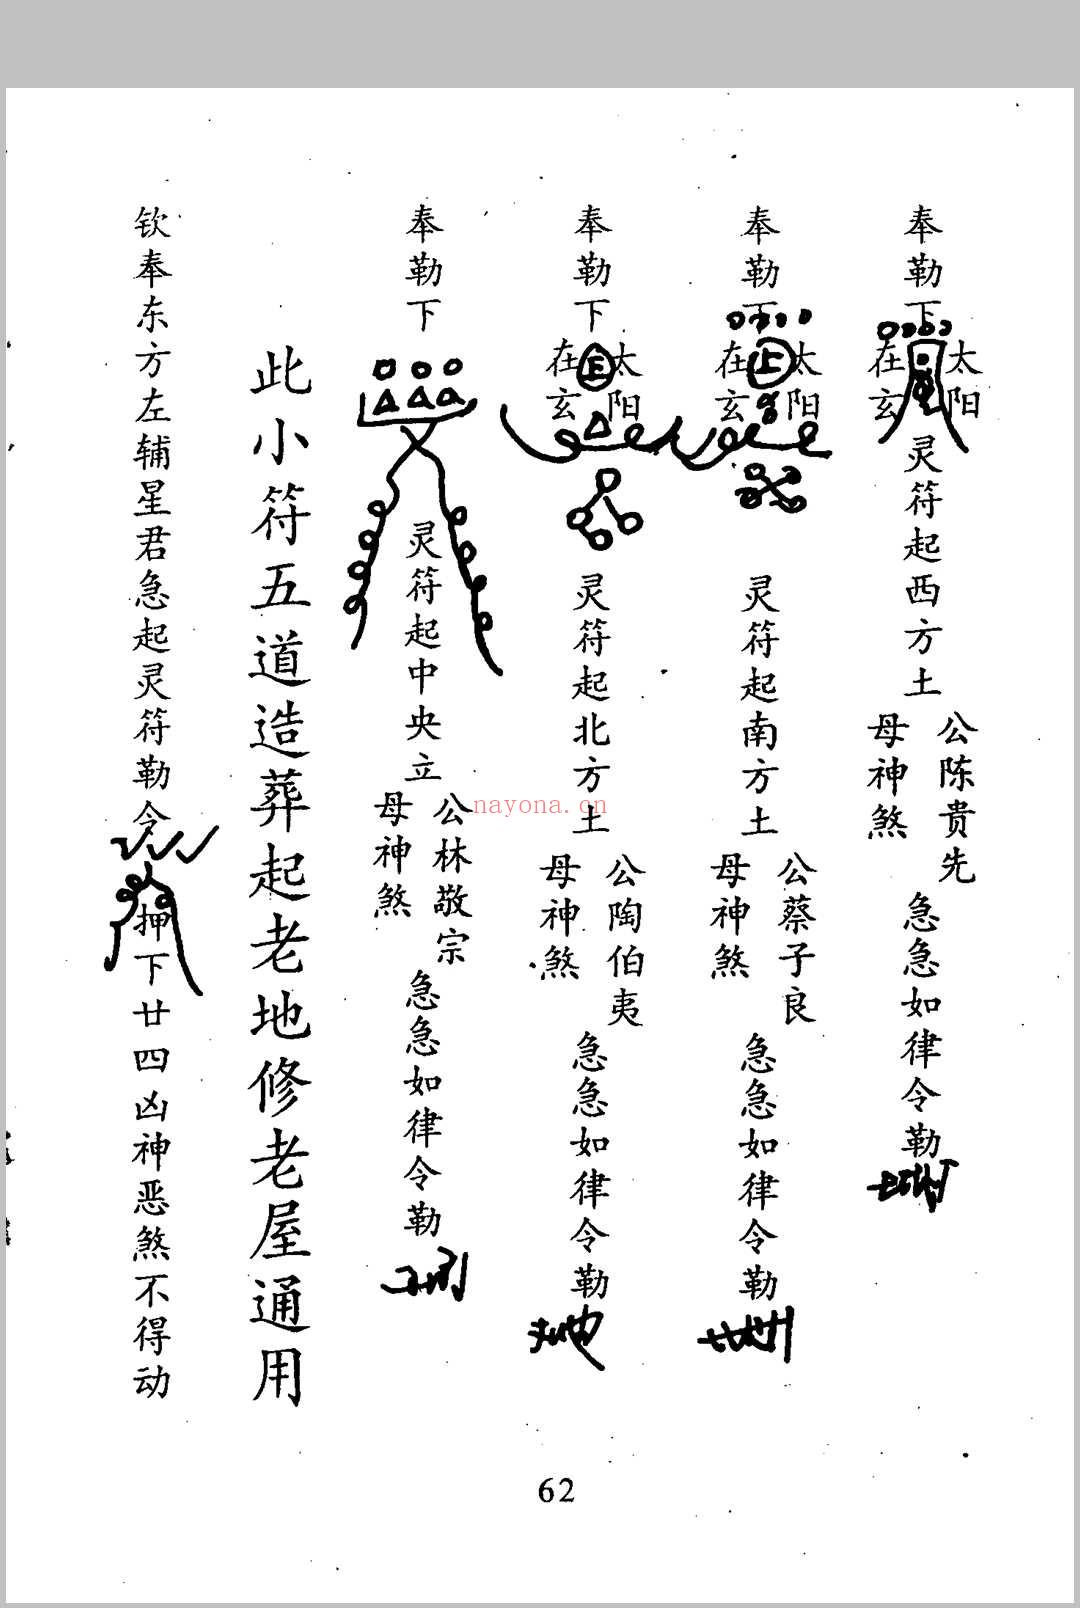 奉勒下
太阳
在玄
灵符起西方土
公陈贵先
母神煞
急急如律令勒
奉勒下
太阳
在玄
灵符起南方土
公蔡子良
母神煞
急急如律令勒
奉勒下
太阳
在玄
灵符起北方土
公陶伯夷
母神煞
急急如律令勒
奉勒下
灵符起中央立
公林敬宗
母神煞
急急如律令勒
此小符五道造葬起老地修老屋通用
钦奉东方左辅星君急起灵符勒令
押下廿四凶神恶煞不得动
62
nayona.cn